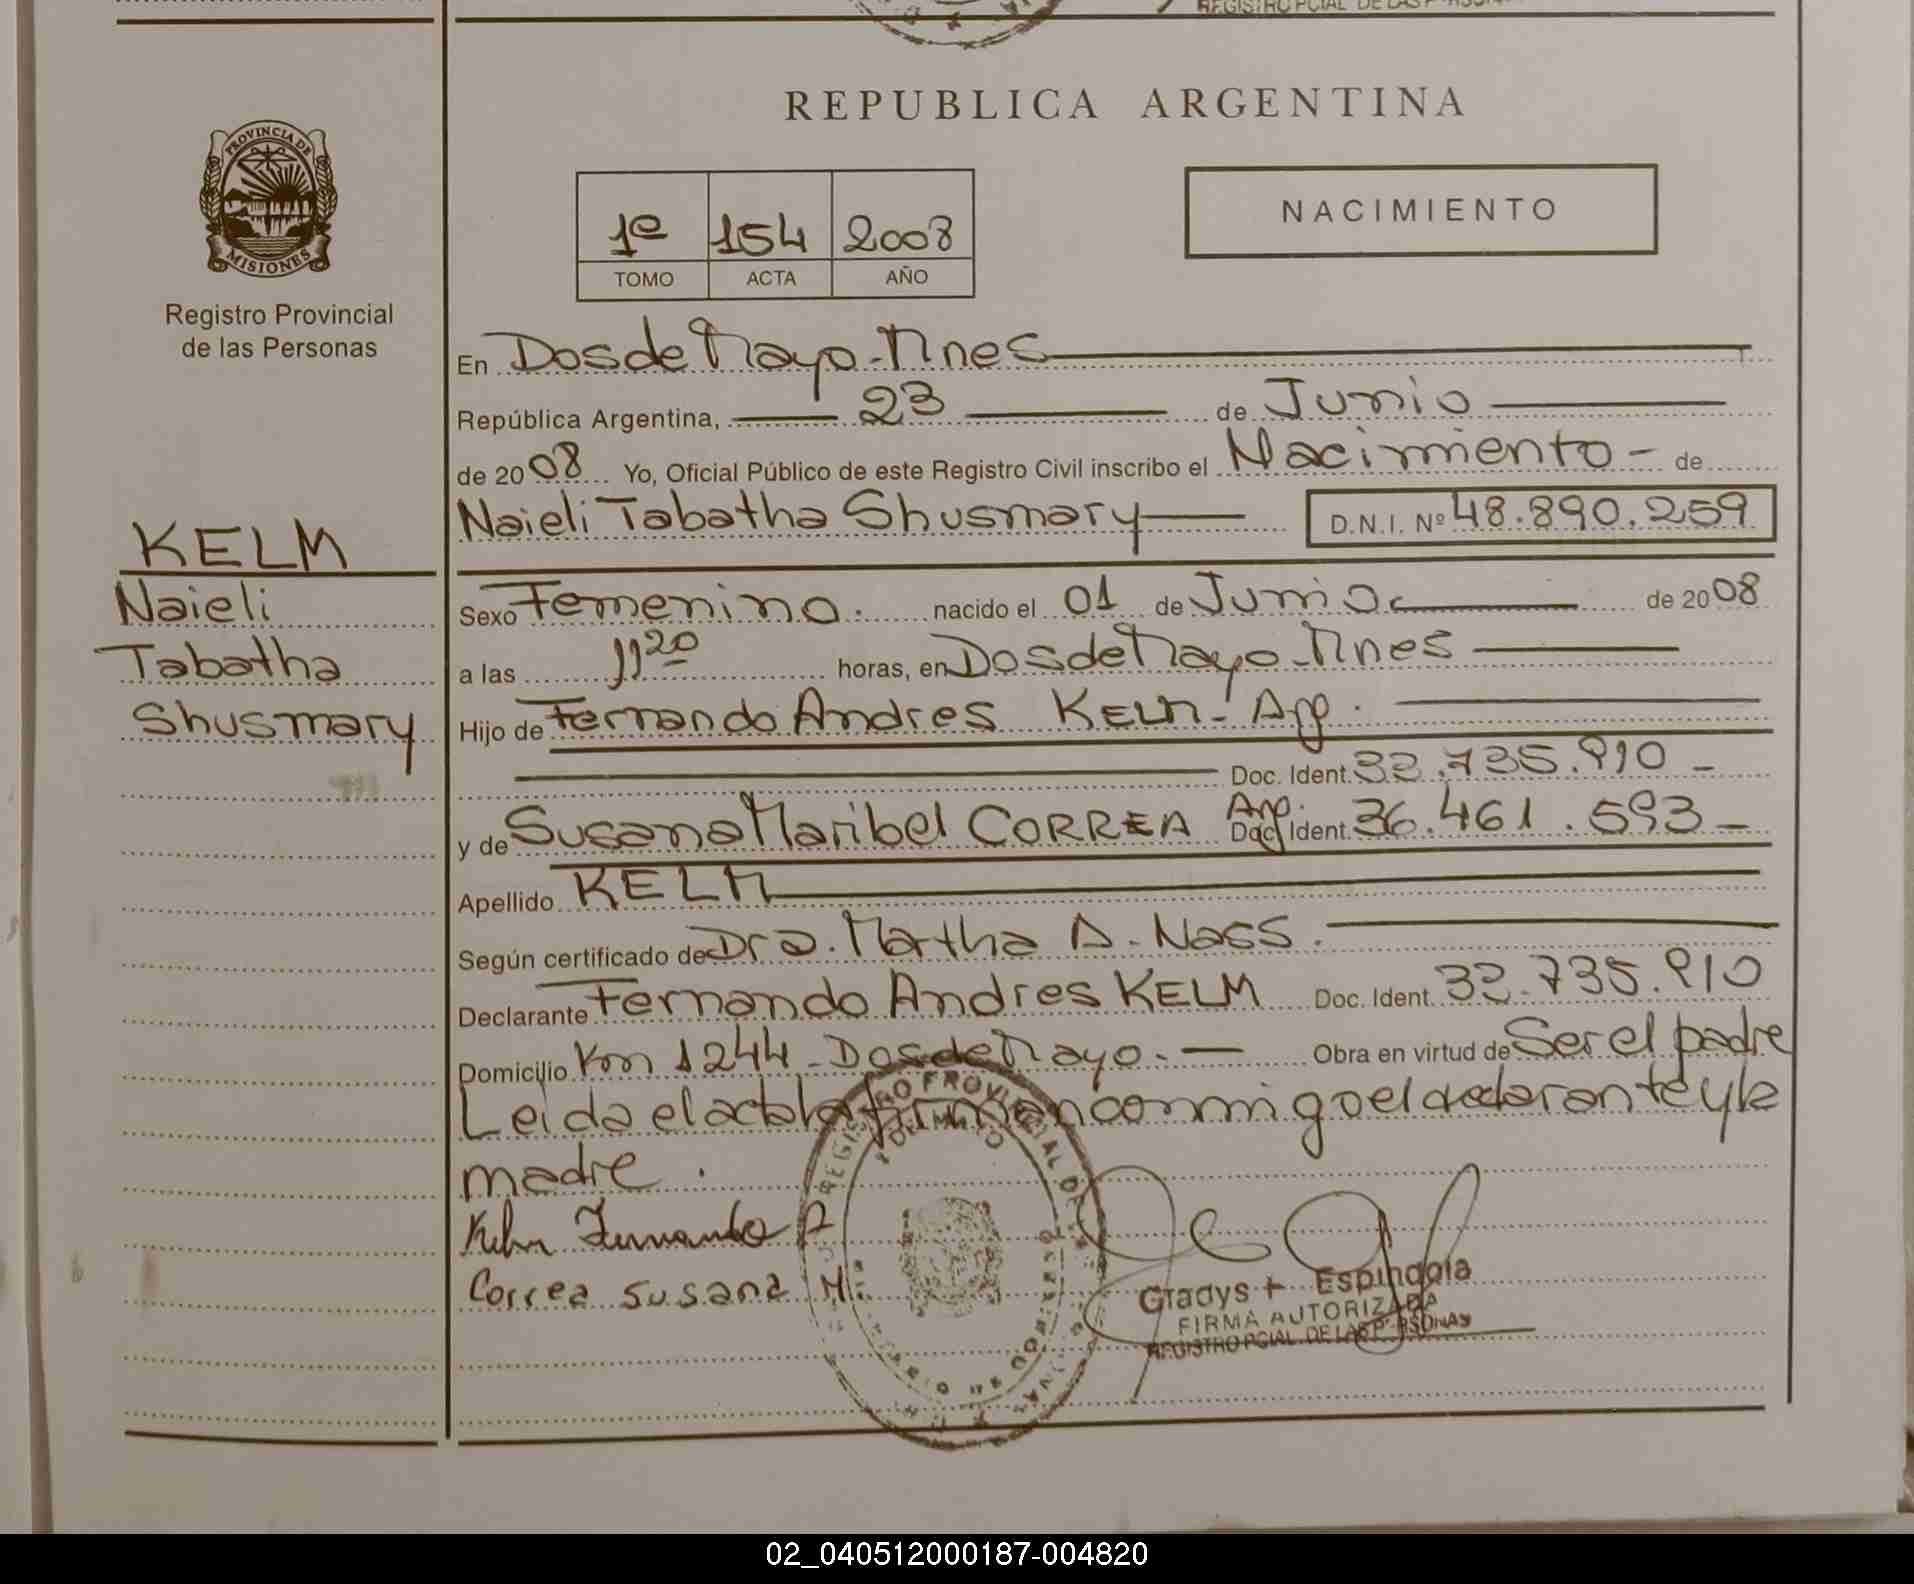 REGISTRO PCIAL DE LAS P
REPUBLICA ARGENTINA
PROVINCIA DE
MISIONES
Registro Provincial
de las Personas
1º 154 2008
TOMO ACTA AÑO
NACIMIENTO
En Dos de Mayo - Mnes
República Argentina, 23 de Junio
de 2008 Yo, Oficial Público de este Registro Civil inscribo el Nacimiento - de
Naieli Tabatha Shusmary D.N.I. Nº 48.890.259
KELM
Naieli
Tabatha
Shusmary
Sexo Femenino. nacido el 01 de Junio. de 2008
a las 11 20 horas, en Dos de Mayo - Mnes
Hijo de Fernando Andres KELM - Arg.
Doc. Ident. 32.735.910 -
y de Susana Maribel CORREA Arg. Doc. Ident. 36.461.593 -
Apellido KELM
Según certificado de Dra. Martha A. Nass.
Declarante Fernando Andres KELM Doc. Ident. 32.735.910
Domicilio Km 1244 - Dos de Mayo. - Obra en virtud de Ser el padre
Leida el acta la firman conmigo el declarante y la
madre.
Kelm Fernando
Correa Susana M.
Gladys Espindola
FIRMA AUTORIZADA
REGISTRO PCIAL DE LAS PERSONAS
02_040512000187-004820